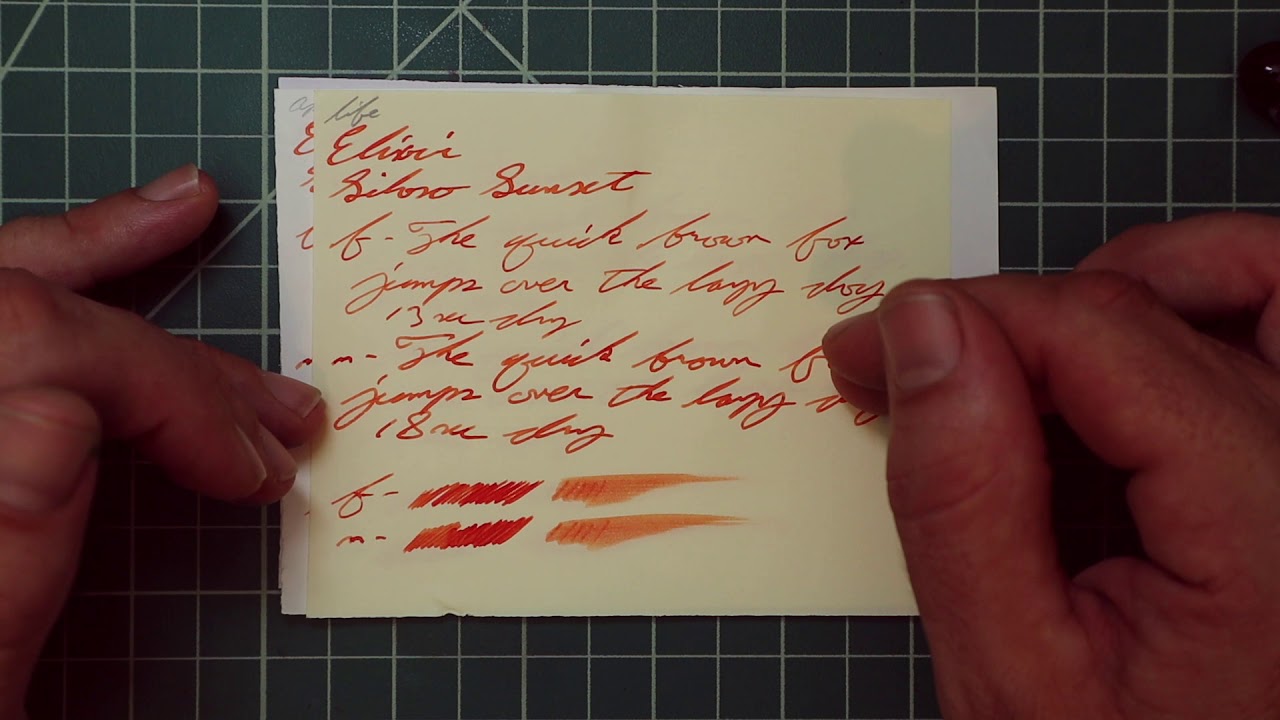 life
Elixir
Siloso Sunset
f - The quick brown fox
jumps over the lazy dog
13 sec dry
m - The quick brown
jumps over the lazy
18 sec dry
f -
m -